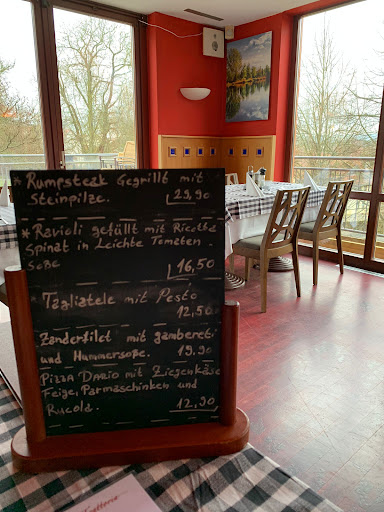 * Rumpsteak Gegrillt mit
Steinpilze. 29,90
* Ravioli gefällt mit Ricotta
Spinat in Leichte Tomaten
Soße 16,50
* Tagliatele mit Pesto
12,50
Zanderfilet mit gambereti
und Hummersoße. 19,90
PIZZA DARIO mit Ziegenkäse
Feige, Parmaschinken und
Rucola. 12,90